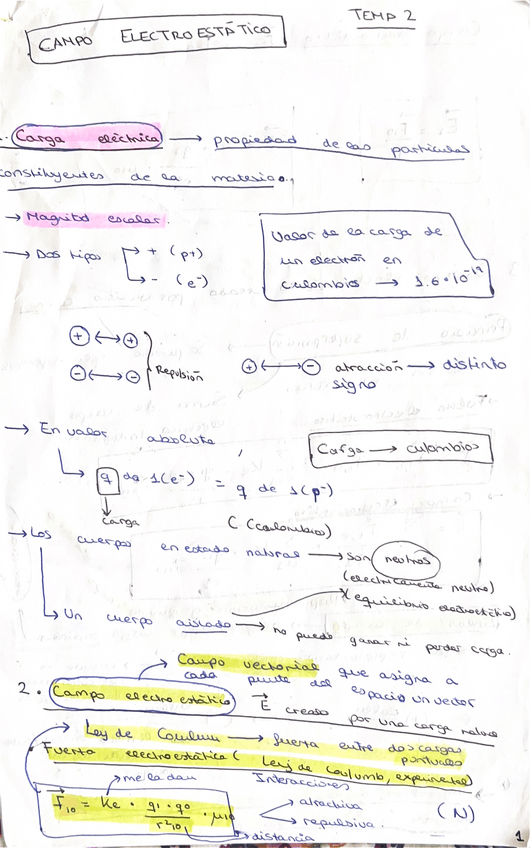 TEMA 2
CAMPO ELECTROESTÁTICO
Carga eléctrica → propiedad de las partículas
constituyentes de la materia.
→ Magnitd escalar.
→ Dos tipos → + (p+)
→ - (e-)
Valor de la carga de
un electrón en
culombios → 1.6·10⁻¹⁹
+ ↔ +
- ↔ -
Repulsión
+ ↔ - atracción → distinto
signo
→ En valor absoluto
→ q de 1(e-) = q de 1(p-)
carga
Carga → culombios
C (coulombios)
→ Los cuerpos en estado natural → son neutros
(electricamente neutro)
(equilibrio electroestático)
→ Un cuerpo aislado → no puede ganar ni perder carga.
→ Campo vectorial que asigna a
cada punto del espacio un vector
2. Campo electroestático E creado por una carga
→ Ley de Coulum → fuerza entre dos cargas
puntuales
Fuerza electroestática (Ley de Coulumb, experimental)
→ me la dan
Interacciones
F₁₀ = Ke · q₁·q₀ / r²₁₀ · μ₁₀
→ atractiva
→ repulsiva
(N)
→ distancia
1